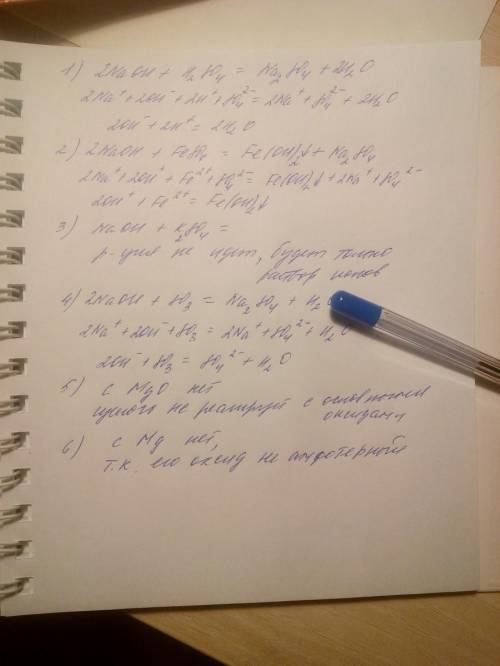 1) 2NaOH + H₂SO₄ = Na₂SO₄ + 2H₂O
2Na⁺ + 2OH⁻ + 2H⁺ + SO₄²⁻ = 2Na⁺ + SO₄²⁻ + 2H₂O
2OH⁻ + 2H⁺ = 2H₂O
2) 2NaOH + FeSO₄ = Fe(OH)₂↓ + Na₂SO₄
2Na⁺ + 2OH⁻ + Fe²⁺ + SO₄²⁻ = Fe(OH)₂↓ + 2Na⁺ + SO₄²⁻
2OH⁻ + Fe²⁺ = Fe(OH)₂↓
3) NaOH + K₂SO₄ =
р-ция не идет, будет только
раствор ионов
4) 2NaOH + SO₃ = Na₂SO₄ + H₂O
2Na⁺ + 2OH⁻ + SO₃ = 2Na⁺ + SO₄²⁻ + H₂O
2OH⁻ + SO₃ = SO₄²⁻ + H₂O
5) с MgO нет
щелочь не реагирует с основными
оксидами
6) с Mg нет,
т.к. его оксид не амфотерный